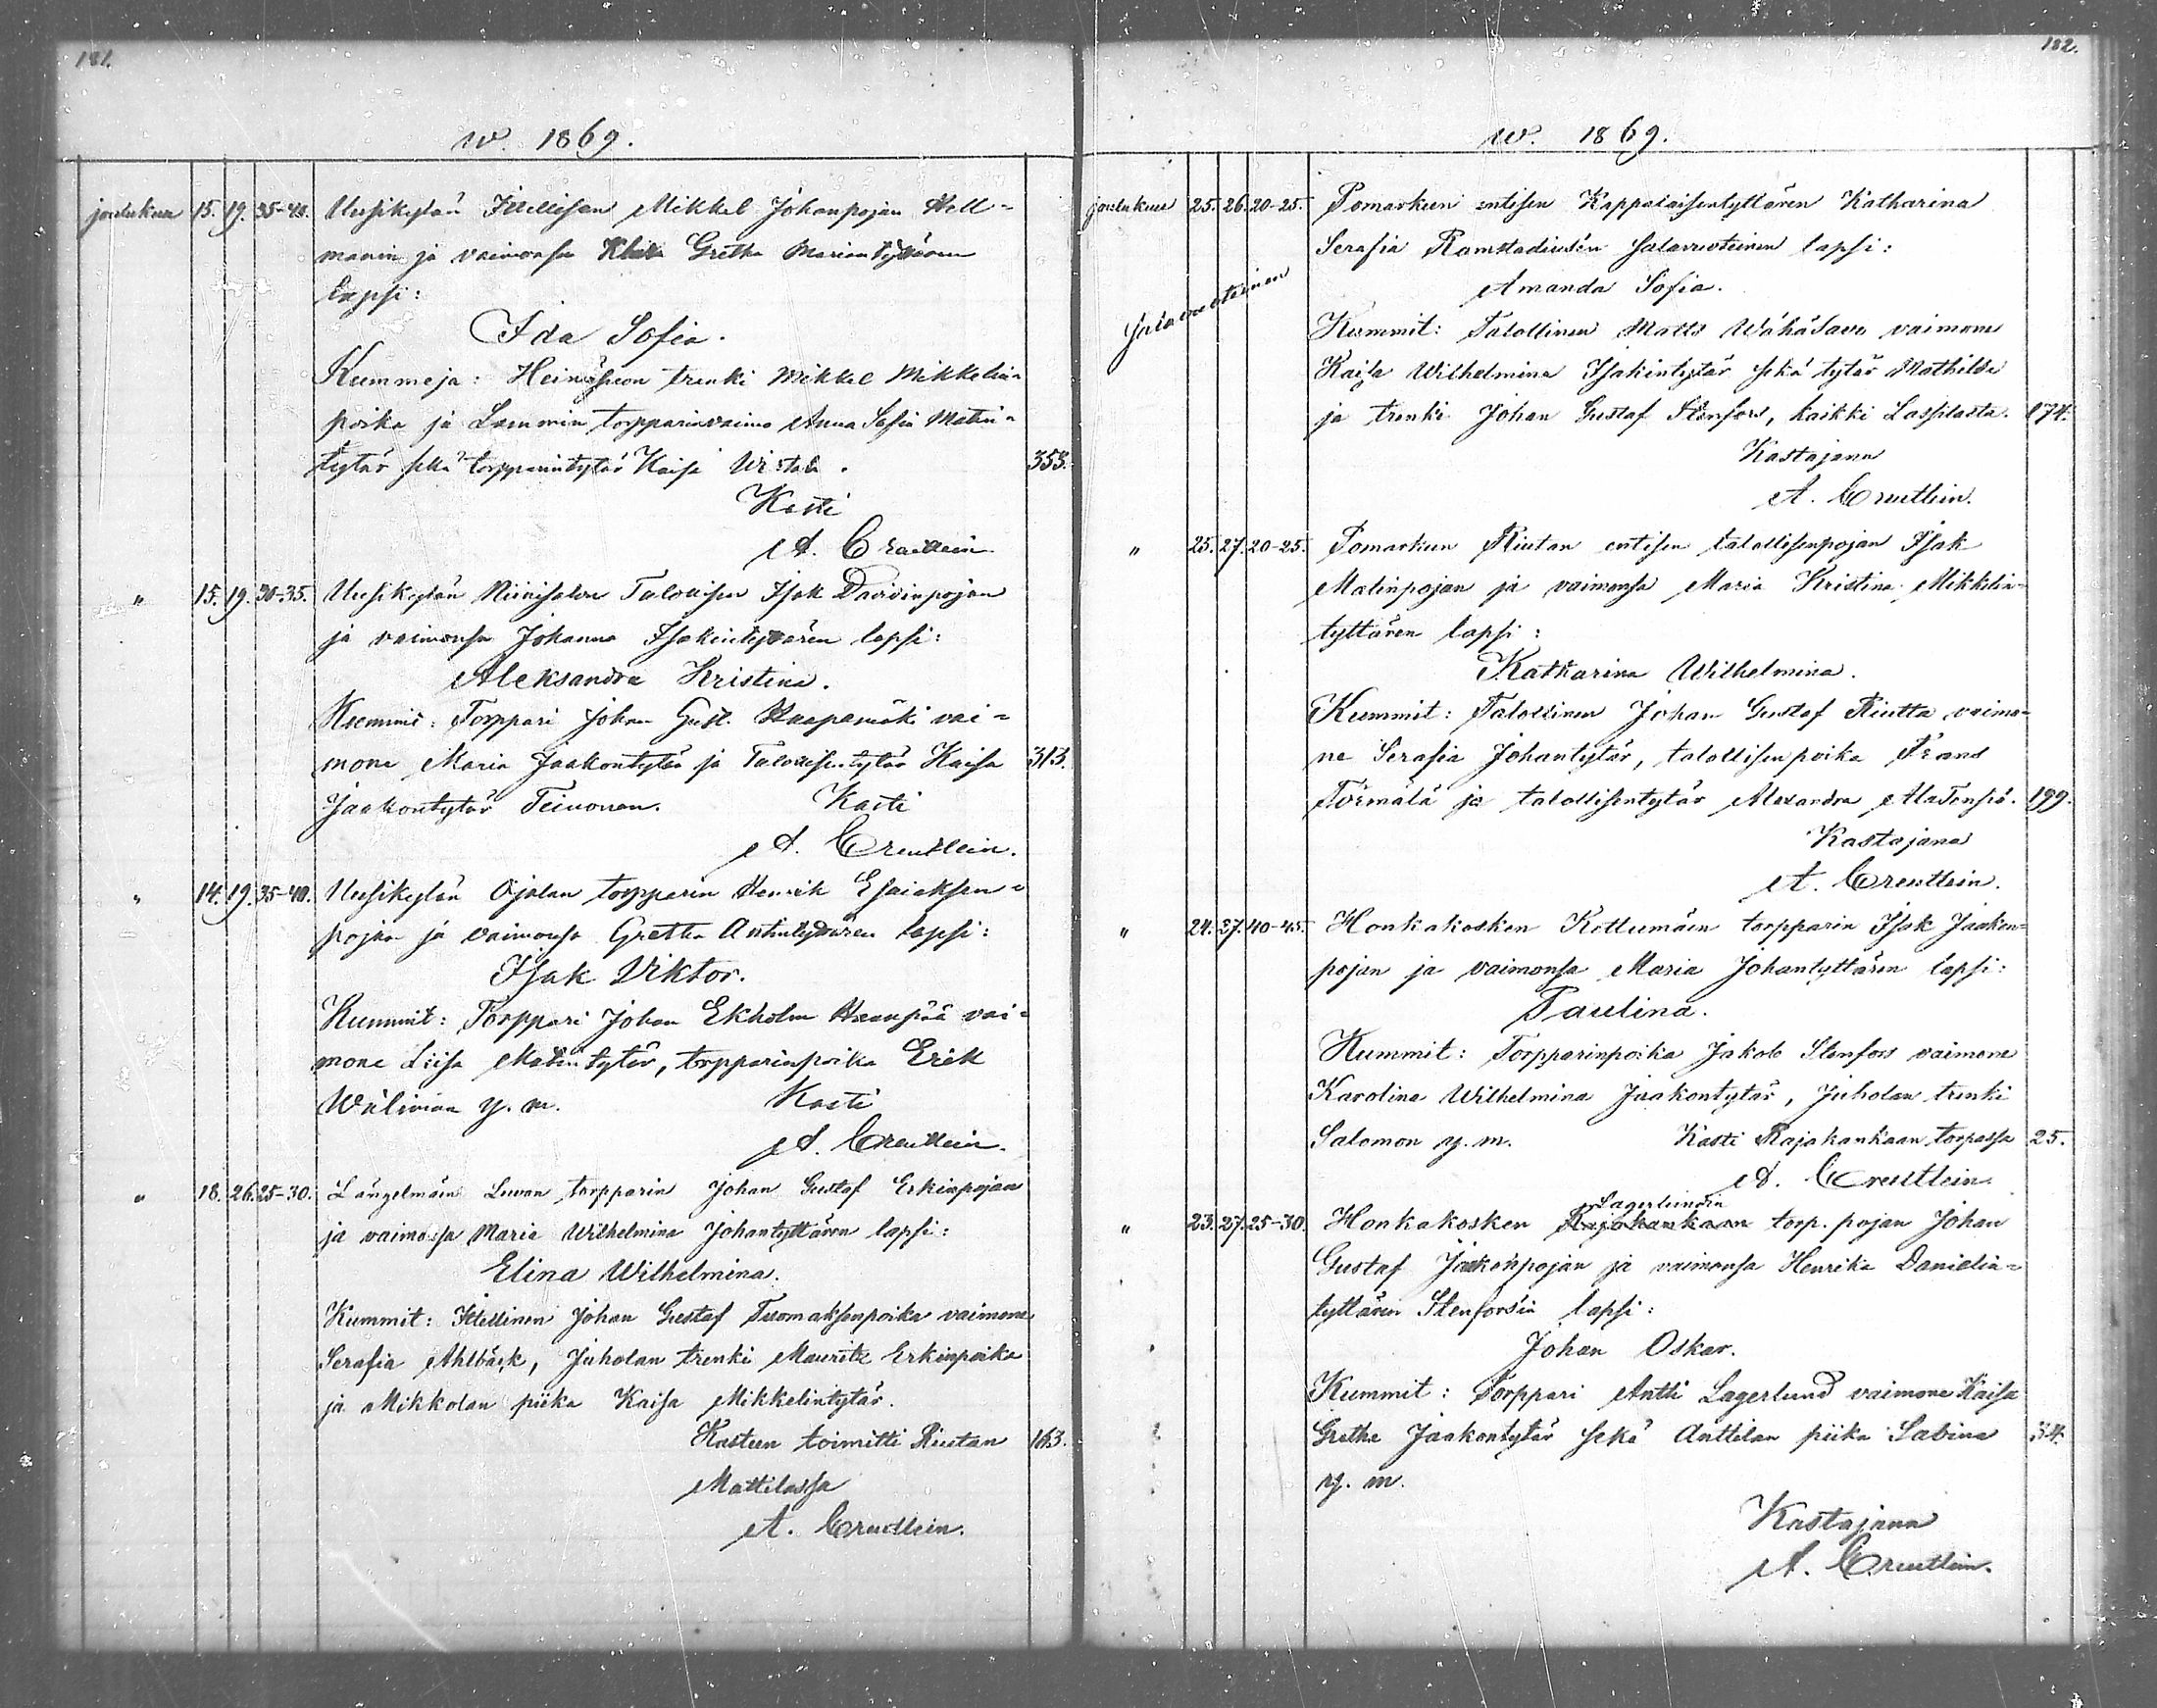 181.
w. 1869.
joulukuu 15. 19. 35-40. Uusikylän Itellisen Mikkel Johanpojan Hell-
manin ja vaimonsa Gretha
lapsi:
Ida Sofia.
Kummeja: trenki Mikkel Mikkelin-
poika ja Lammin torpparinvaimo Anna Sofia Matin-
tytär sekä torpparintytär Kaisa 353.
Kasti
A. Creutlein.
" 15. 19. 30-35. Uusikylän Niinisalon Talollisen Isak Davidinpojan
ja vaimonsa Johanna Isakintyttären lapsi:
Aleksandra Kristina.
Kummit: Torppari Johan Gust. Haapamäki vai-
mone Maria Jaakontytär ja Talollisentytär Kaisa 313.
Jaakontytär Teinonen. Kasti
A. Creutlein.
" 14. 19. 35-40. Uusikylän Ojalan torpparin Henrik Esaiaksen-
pojan ja vaimonsa Gretha Antintyttären lapsi:
Isak Viktor.
Kummit: Torppari Johan Ekholm Haanpää vai-
mone Liisa Matintytär, torpparinpoika Erik
y. m. Kasti
A. Creutlein.
" 18. 26. 25-30. Längelmäen Luvan torpparin Johan Gustaf Erkinpojan
ja vaimonsa Maria Wilhelmina Johantyttären lapsi:
Elina Wilhelmina.
Kummit: Itellinen Johan Gustaf Tuomaksenpoika vaimone
Serafia Ahlbäck, Juholan trenki Mauritz Erkinpoika
ja Mikkolan piika Kaisa Mikkelintytär.
Kasteen toimitti Riutan 163.
Mattilassa
A. Creutlein.
182.
w. 1869.
joulukuu 25. 26. 20-25. Pomarkun entisen Kappalaisentyttären Katharina
Serafia Ramstadiusen salavuoteinen lapsi:
Salavuoteinen
Amanda Sofia.
Kummit: Talollinen Matts WähäSavo vaimone
Kaisa Wilhelmina Isakintytär sekä tytär Mathilda
ja trenki Johan Gustaf Stenfors, kaikki Lassilasta. 174.
Kastajana
A. Creutlein.
" 25. 27. 20-25. Pomarkun Riutan entisen talollisenpojan Isak
Matinpojan ja vaimonsa Maria Kristina Mikkelin-
tyttären lapsi:
Katharina Wilhelmina.
Kummit: Talollinen Johan Gustaf Riutta vaimo-
ne Serafia Johantytär, talollisenpoika Frans
Törmälä ja talollisentytär Alexandra 199.
Kastajana
A. Creutlein.
" 24. 27. 40-45. Honkakosken Kottumäen torpparin Isak Jaakon-
pojan ja vaimonsa Maria Johantyttären lapsi:
Paulina.
Kummit: Torpparinpoika Jakob Stenfors vaimone
Karolina Wilhelmina Jaakontytär, Juholan trenki
Salomon y. m. Kasti Rajakankaan torpassa 25.
A. Creutlein.
Lagerlundin
" 23. 27. 25-30. Honkakosken Rajakankaan torp. pojan Johan
Gustaf Jaakonpojan ja vaimonsa Henrika Danielin-
tyttären Stenforsin lapsi:
Johan Oskar.
Kummit: Torppari Antti Lagerlund vaimone Kaisa
Gretha Jaakontytär sekä Anttilan piika Sabina 34.
y. m.
Kastajana
A. Creutlein.